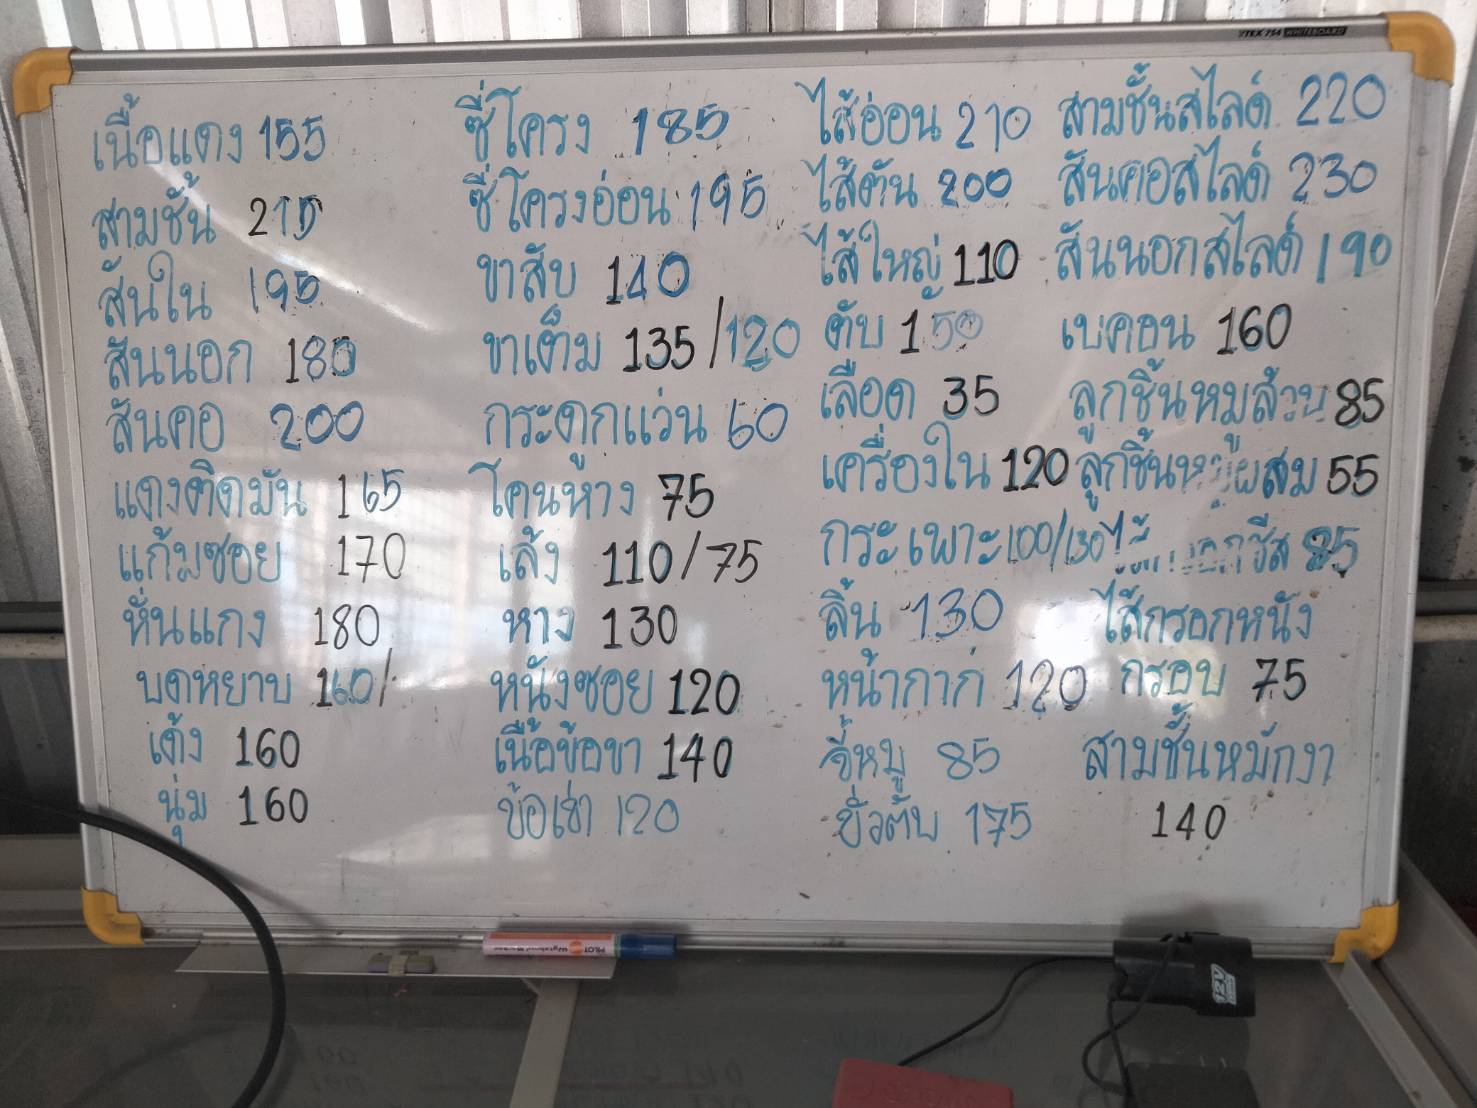 VTEX 754 WHITEBOARD
เนื้อแดง 155
สามชั้น 215
สันใน 195
สันนอก 180
สันคอ 200
แดงติดมัน 165
แก้มซอย 170
หั่นแกง 180
บดหยาบ 160/
เด้ง 160
นุ่ม 160
ซี่โครง 185
ซี่โครงอ่อน 195
ขาสับ 140
ขาเต็ม 135/120
กระดูกแว่น 60
โคนห้าง 75
เล้ง 110/75
หาง 130
หนังซอย 120
เนื้อข้อขา 140
ข้อเข่า 120
ไส้อ่อน 210
ไส้ตัน 200
ไส้ใหญ่ 110
ตับ 150
เลือด 35
เครื่องใน 120
กระเพาะ 100/130
ลิ้น 130
หน้ากาก 120
ขี้หมู 85
ขั้วตับ 175
สามชั้นสไลด์ 220
สันคอสไลด์ 230
สันนอกสไลด์ 190
เบคอน 160
ลูกชิ้นหมูล้วน 85
ลูกชิ้นหมูผสม 55
ไส้
ไส้กรอกหนัง
กรอบ 75
สามชั้นหมักงา
140
PILOT
12V